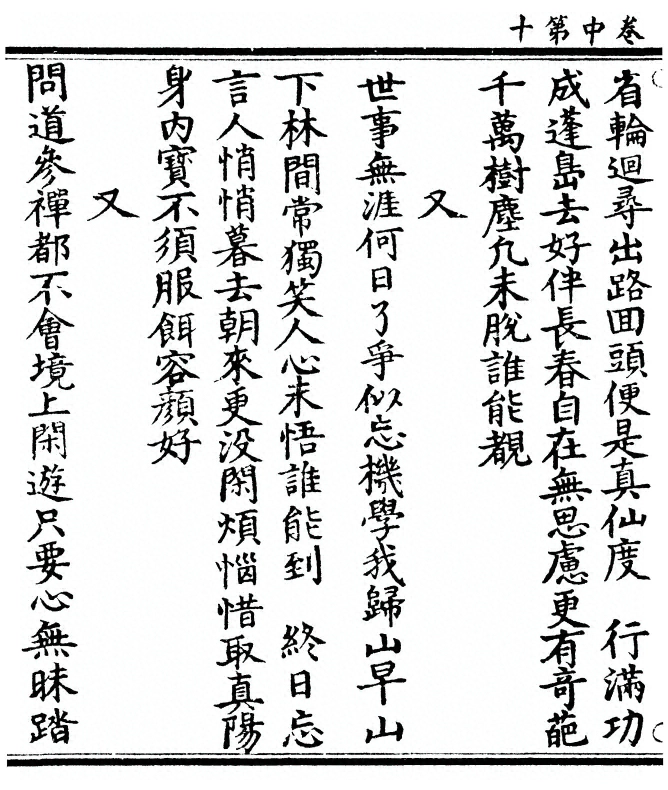 卷中第十
省輪迴尋出路囬頭便是真仙度　行滿功
成蓬島去好伴長春自在無思慮更有竒葩
千萬樹塵凢未脫誰能覩
又
世事無涯何日了爭似忘機學我歸山早山
下林間常獨笑人心未悟誰能到　終日忘
言人悄悄暮去朝來更没閑煩惱惜取真陽
身内寳不須服餌容顔好
又
問道參禪都不會境上閑遊只要心無昧踏